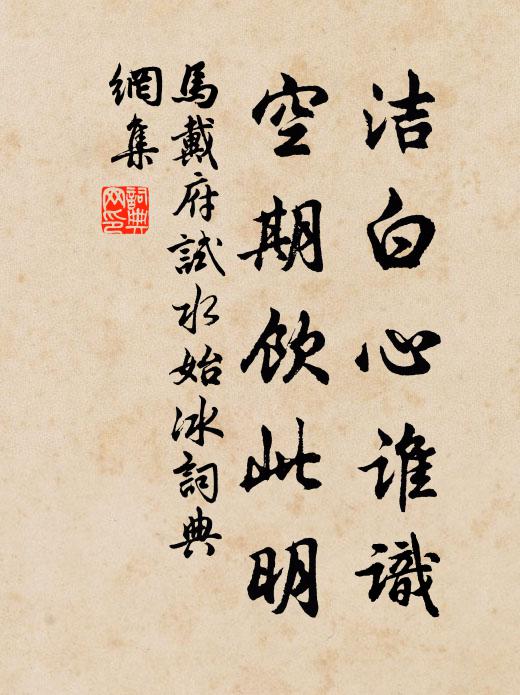 洁白心谁識
空期饮此明
馬戴府試水始冰詞典
網集
詞典
网印